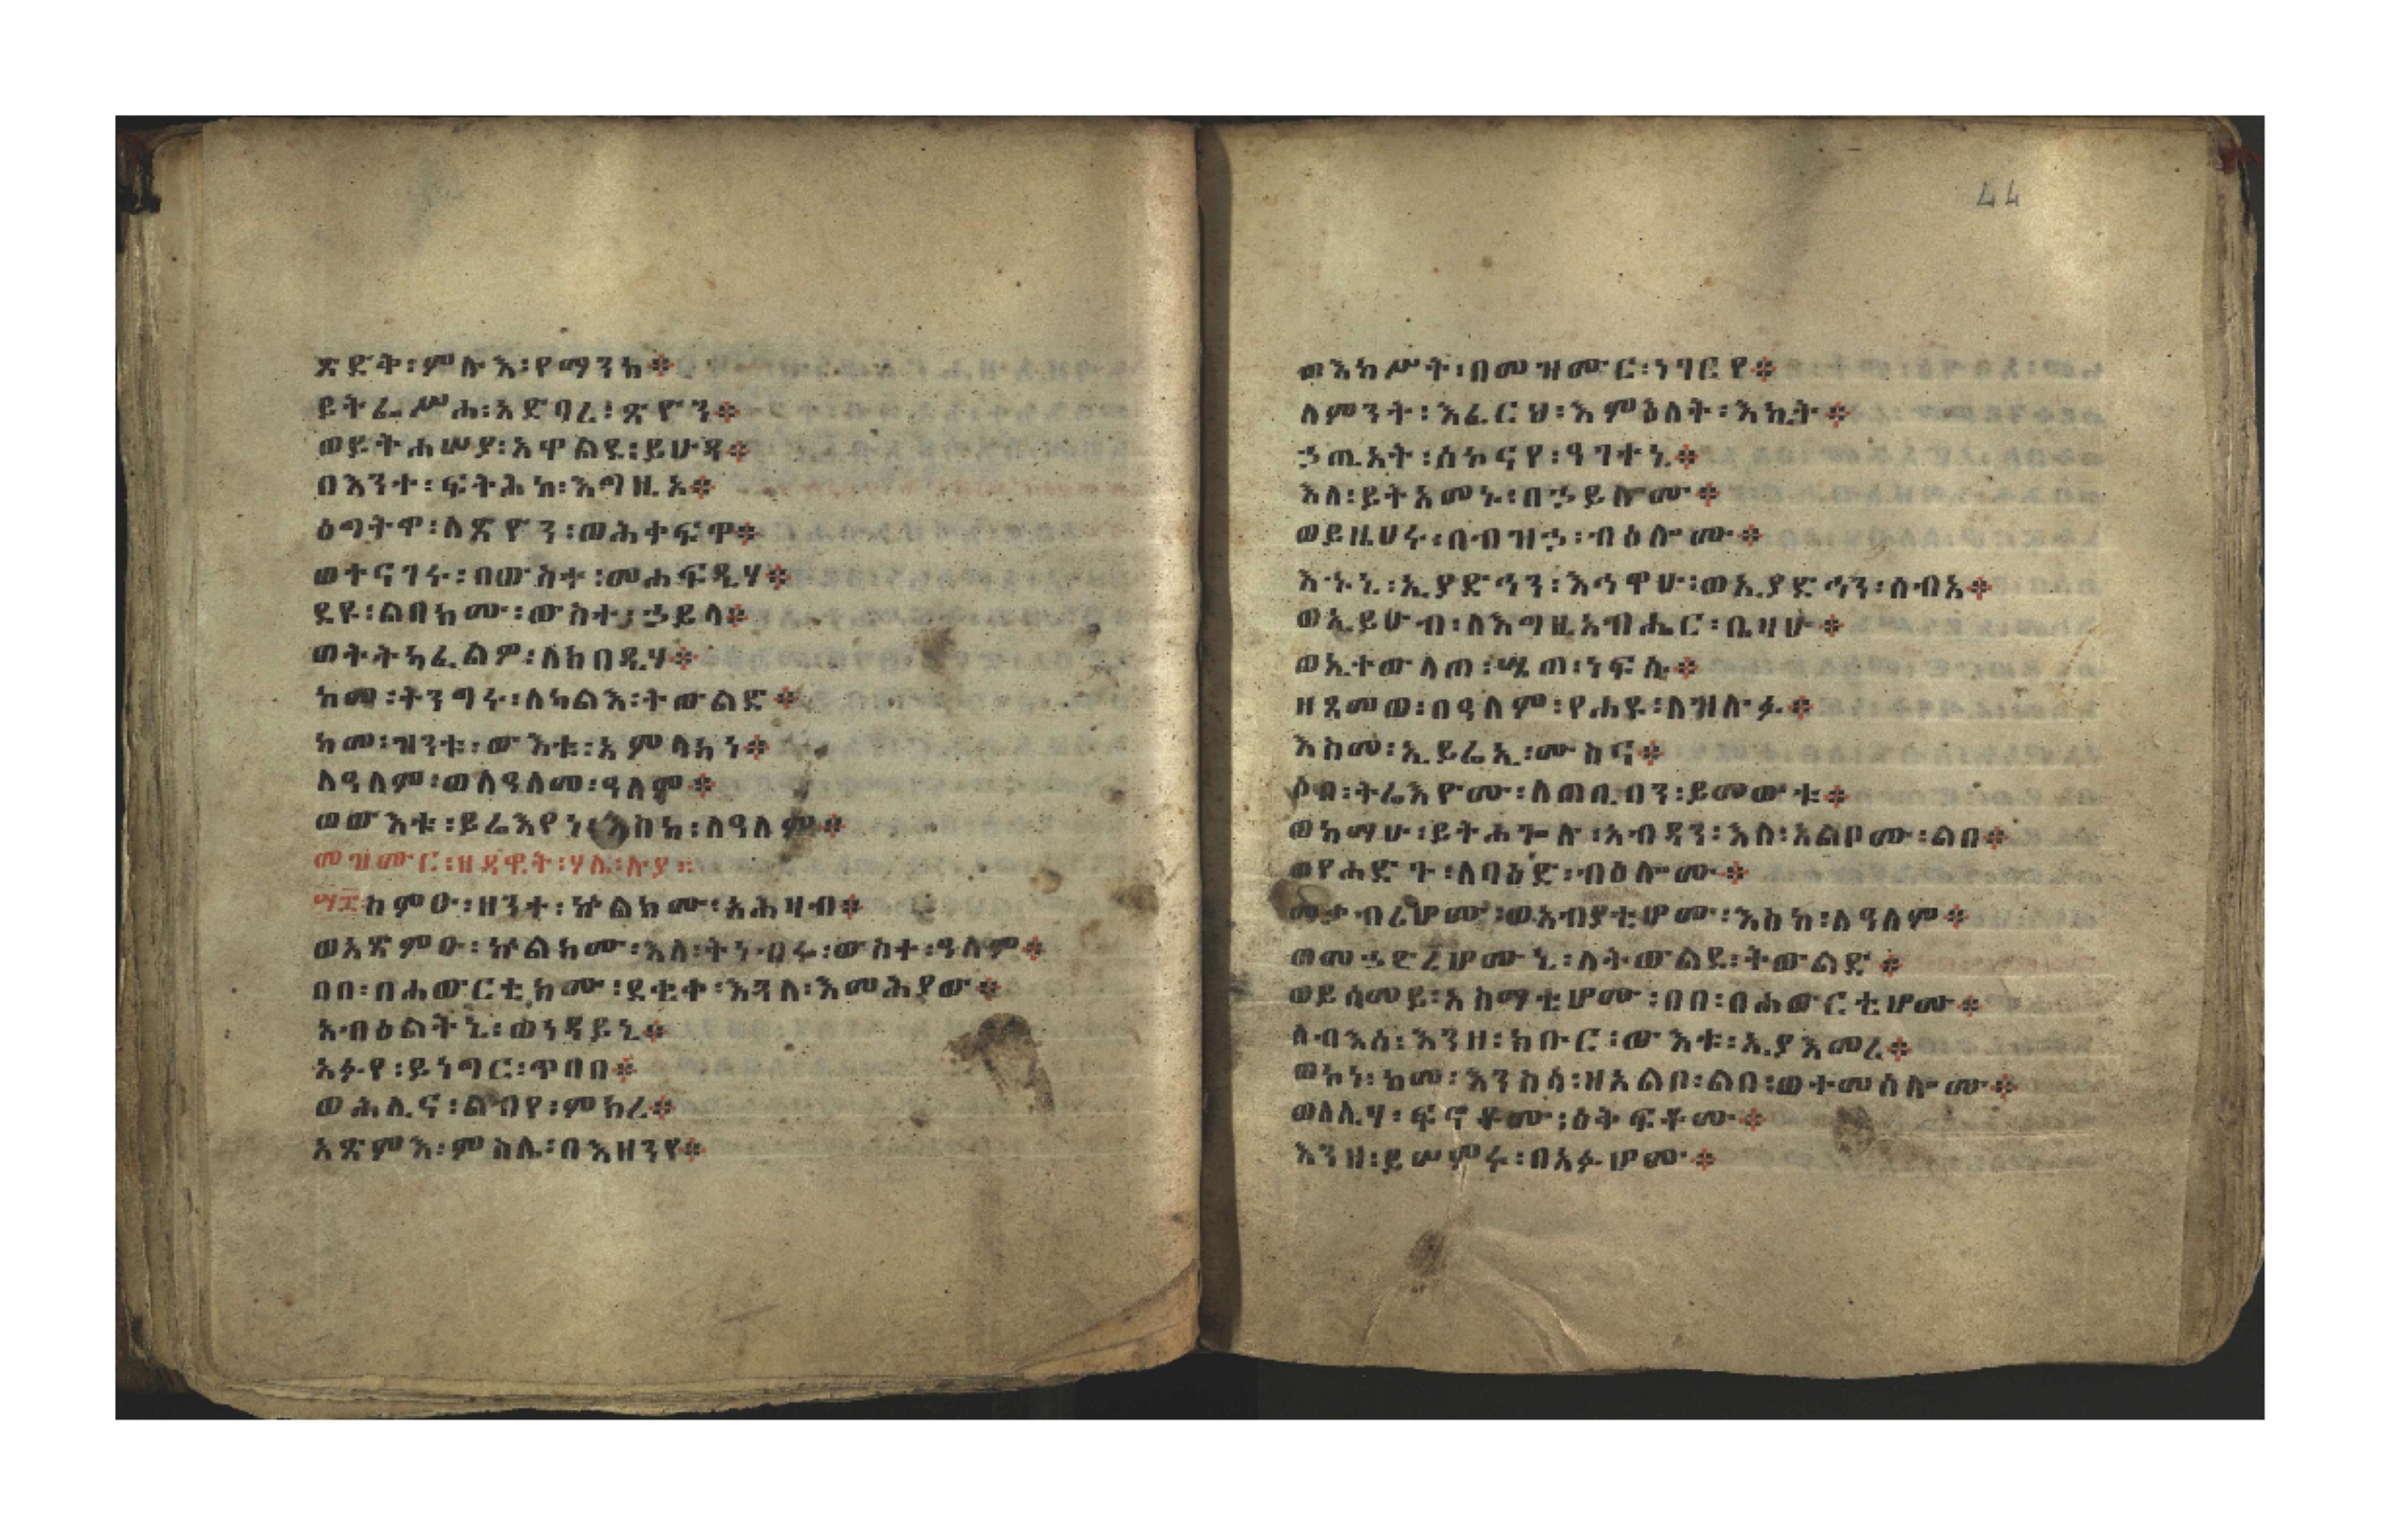 ጽድቅ፡ምሉእ፡የማንከ።
ይትፌሥሑ፡አድባረ፡ጽዮን።
ወይትሐሠያ፡አዋልደ፡ይሁዳ።
በእንተ፡ፍትሕከ፡እግዚኦ።
ዕግትዋ፡ለጽዮን፡ወሕቀፍዋ።
ወተናገሩ፡በውስተ፡መሐፍዲሃ።
ደዩ፡ልበክሙ፡ውስተ፡ኃይላ።
ወትትካፈልዎ፡ለከበዲሃ።
ከመ፡ትንግሩ፡ለካልእ፡ትውልድ።
ከመ፡ዝንቱ፡ውእቱ፡አምላክነ።
ለዓለም፡ወለዓለመ፡ዓለም።
ወውእቱ፡ይሬእየነ፡እስከ፡ለዓለም።
መዝሙር፡ዘዳዊት፡ሃሌ፡ሉያ።
፵፰ስምዑ፡ዘንተ፡ኵልክሙ፡አሕዛብ።
ወአጽምዑ፡ኵልክሙ፡እለ፡ትነብሩ፡ውስተ፡ዓለም።
በበ፡በሐውርቲክሙ፡ደቂቀ፡እጓለ፡እመሕያው።
አብዕልትኒ፡ወነዳይኒ።
አፉየ፡ይነግር፡ጥበበ።
ወሕሊና፡ልብየ፡ምክረ።
አጽምእ፡ምስሌ፡በእዘንየ።
ወእከሥት፡በመዝሙር፡ነገርየ።
ለምንት፡እፈርህ፡እምዕለት፡እኪት።
ኃጢአት፡ሰኰናየ፡ዓገተኒ።
እለ፡ይትአመኑ፡በኃይሎሙ።
ወይዜሀሩ፡በብዝኃ፡ብዕሎሙ።
እኁኒ፡ኢያድኅን፡እኅዋሁ፡ወኢያድኅን፡ሰብእ።
ወኢይሁብ፡ለእግዚአብሔር፡ቤዛሁ።
ወኢተውላጠ፡ሤጠ፡ነፍሱ።
ዘጻመወ፡በዓለም፡የሐዩ፡ለዝሉፉ።
እስመ፡ኢይሬኢ፡ሙስና።
ሶበ፡ትሬእዮሙ፡ለጠቢባን፡ይመውቱ።
ወከማሁ፡ይትሐጐሉ፡አብዳን፡እለ፡አልቦሙ፡ልበ።
ወየሐድጉ፡ለባዕድ፡ብዕሎሙ።
መቃብሪሆሙ፡ወአብያቲሆሙ፡እስከ፡ለዓለም።
ወመኃድሪሆሙኒ፡ለትውልደ፡ትውልድ።
ወይሰመይ፡አስማቲሆሙ፡በበ፡በሐውርቲሆሙ።
ሰብእሰ፡እንዘ፡ክቡር፡ውእቱ፡ኢያእመረ።
ወኮነ፡ከመ፡እንስሳ፡ዘአልቦ፡ልበ፡ወተመሰሎሙ።
ወለሊሃ፡ፍኖቶሙ፡ዕቅፍቶሙ።
እንዘ፡ይሠምሩ፡በአፉሆሙ።
44